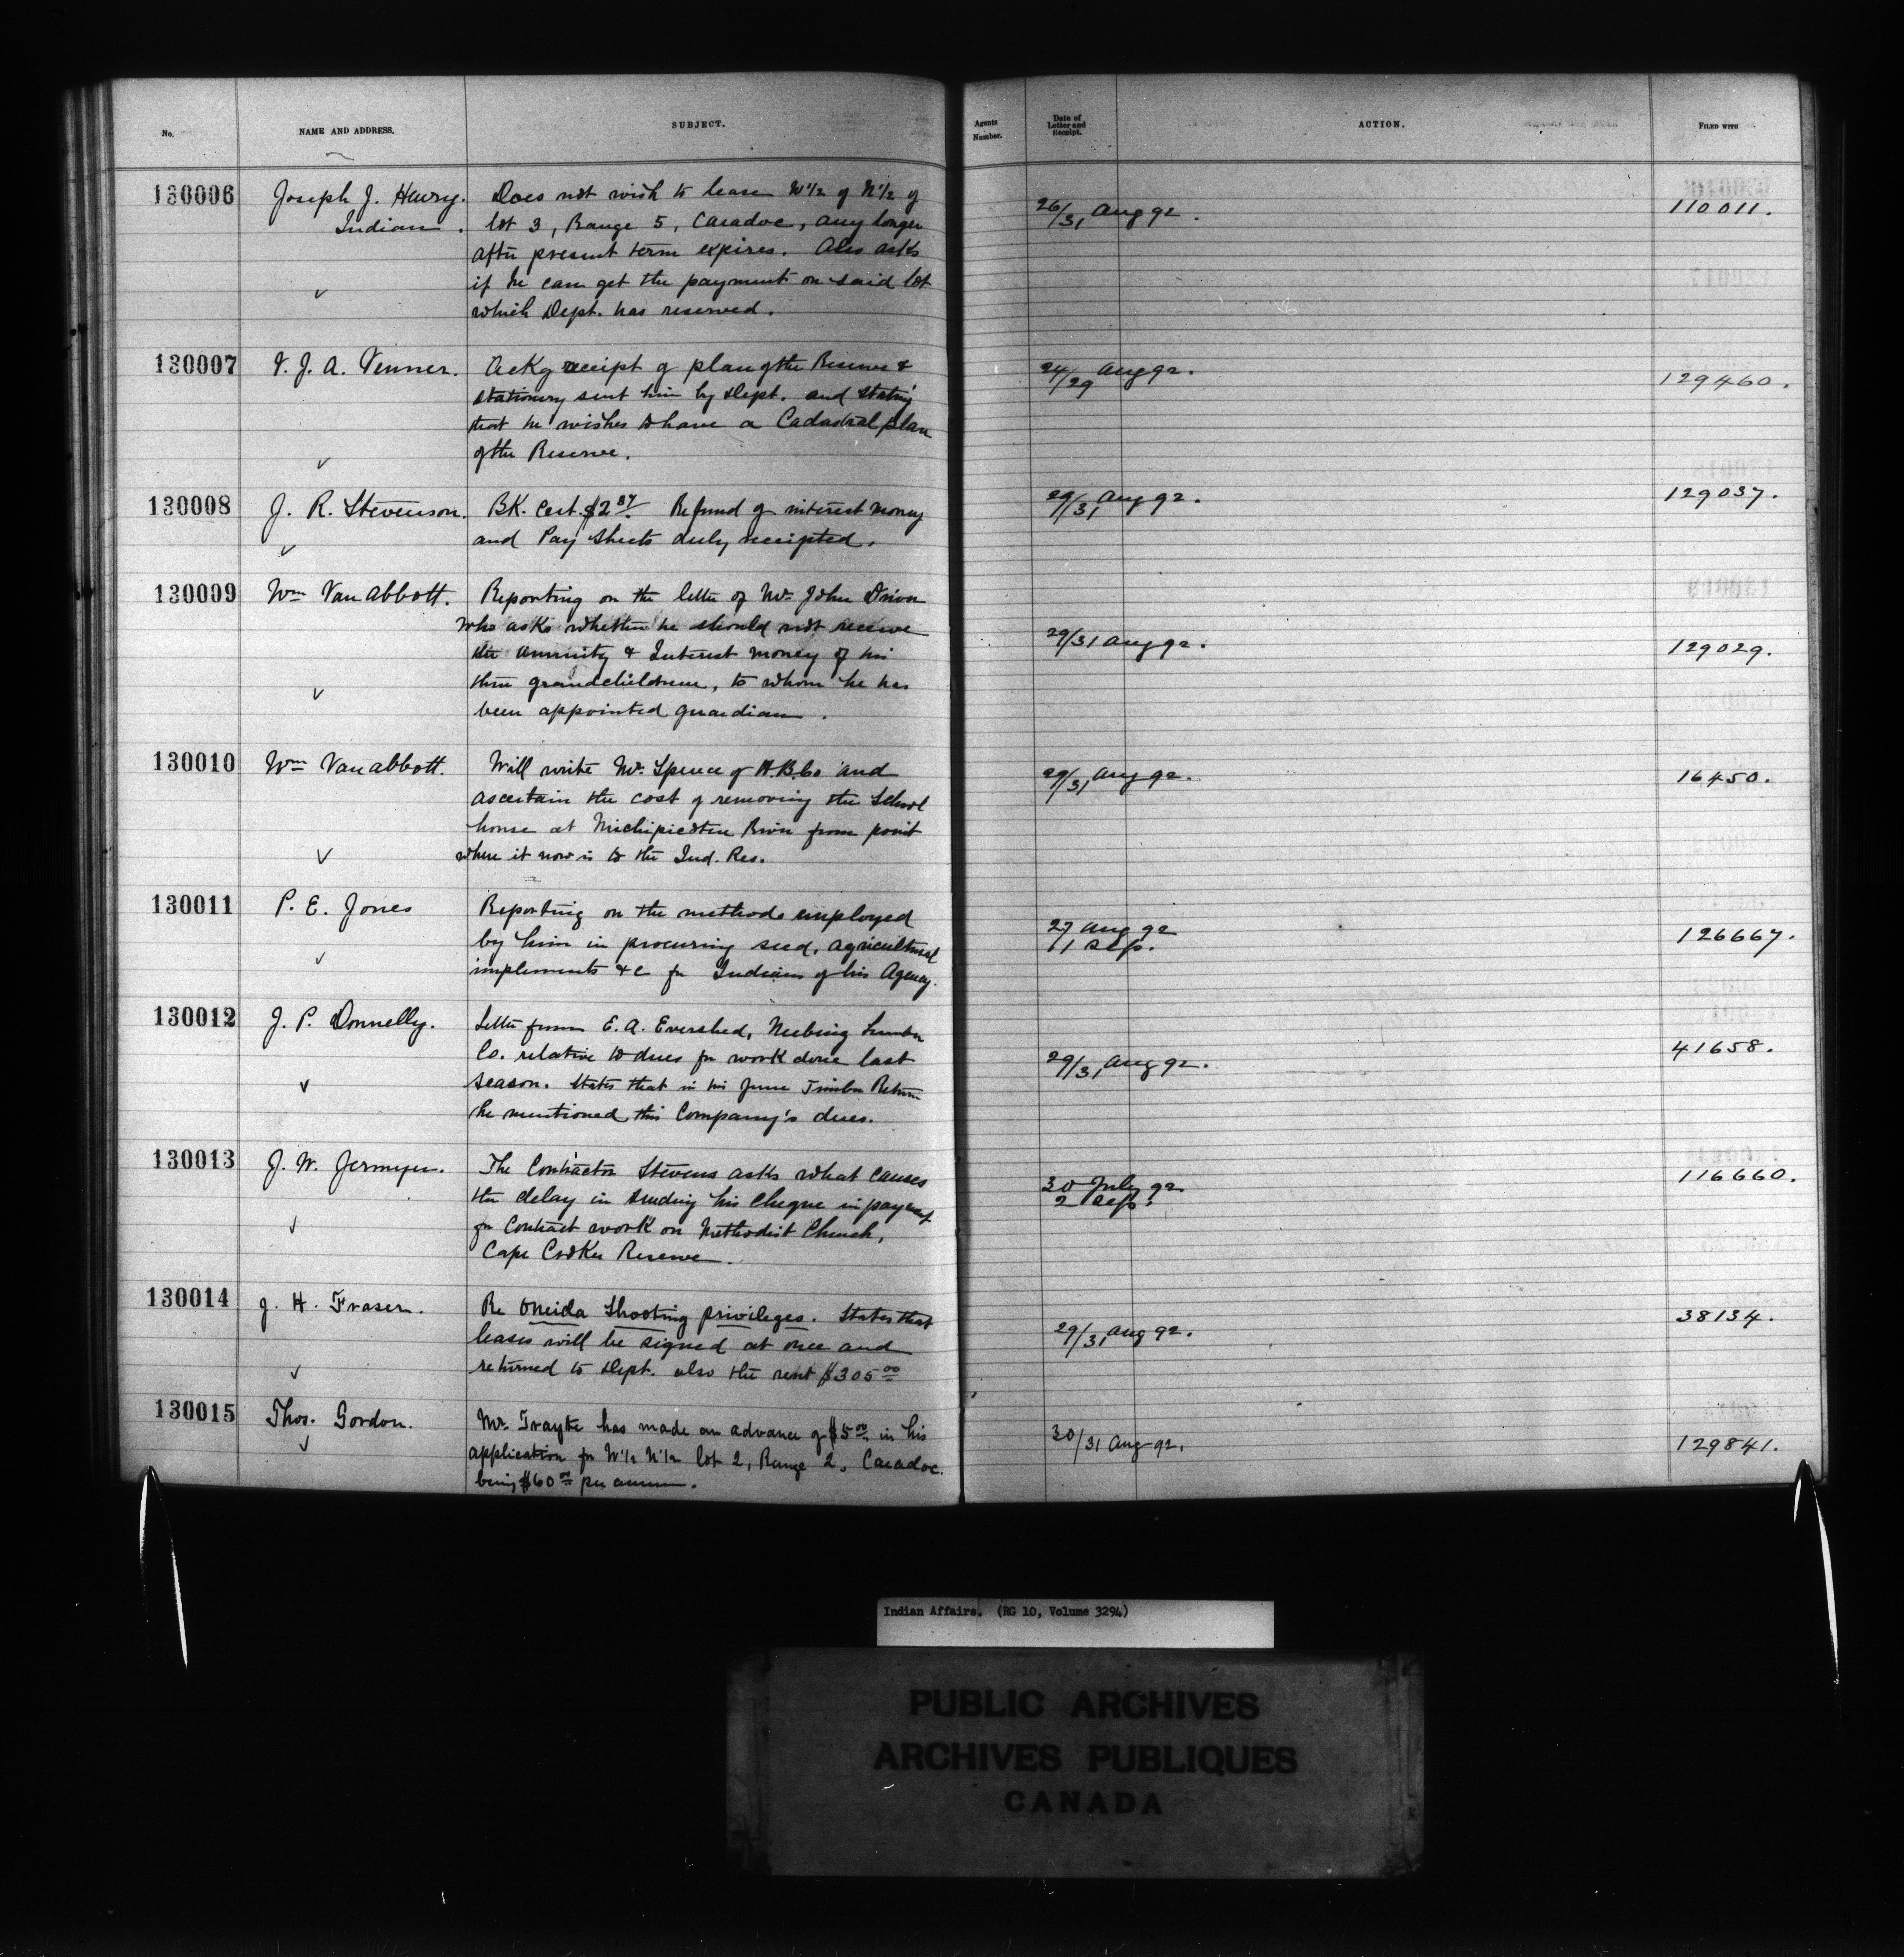 No. NAME AND ADDRESS. SUBJECT. Agents Number. Date of Letter and Receipt. ACTION. FILED WITH
130006 Joseph J. Henry. Does not wish to lease W½ of N½ of 26/31 Aug 92. 110011.
Indian. lot 3, Range 5, Caradoc, any longer
after present term expires. Also asks
if he can get the payment on said lot
which Dept. has reserved.
130007 V. J. A. Venner. Ackg receipt of plan of the Reserve & 24/29 Aug 92. 129460.
stationery sent him by Dept. and stating
that he wishes to have a Cadastral plan
of the Reserve.
130008 J. R. Stevenson. BK. Cert. $2.87 Refund of interest money 29/31 Aug 92. 129037.
and Pay Sheets duly receipted.
130009 Wm Van Abbott. Reporting on the letter of Mr. John Driver
who asks whether he should not receive 29/31 Aug 92. 129029.
the annuity & Interest money of his
three grandchildren, to whom he has
been appointed guardian.
130010 Wm Van Abbott. Will write Mr. Spence of H.B.Co and 29/31 Aug 92. 16450.
ascertain the cost of removing the School
house at Michipicoten River from point
where it now is to the Ind. Res.
130011 P. E. Jones Reporting on the methods employed 27 Aug 92 126667.
by him in procuring seed, agricultural 1 Sep.
implements &c for Indians of his Agency.
130012 J. P. Donnelly. Letter from E. A. Evershed, Neebing Lumber 41658.
Co. relative to dues for work done last 29/31 Aug 92.
season. States that in his June Timber Return
he mentioned this Company's dues.
130013 J. W. Jermyn. The Contractor Stevens asks what causes 30 July 92. 116660.
the delay in sending his cheque in payment 2 Sep.
for Contract work on Methodist Church,
Cape Croker Reserve.
130014 J. H. Fraser. Re Oneida Shooting privileges. States that 38134.
leases will be signed at once and 29/31 Aug 92.
returned to Dept. also the rent $305.00
130015 Thos. Gordon. Mr. has made an advance of $5.00 in his 30/31 Aug 92. 129841.
application for W½ N½ lot 2, Range 2, Caradoc.
being $60.00 per annum.
Indian Affairs. (RG 10, Volume 3294)
PUBLIC ARCHIVES
ARCHIVES PUBLIQUES
CANADA